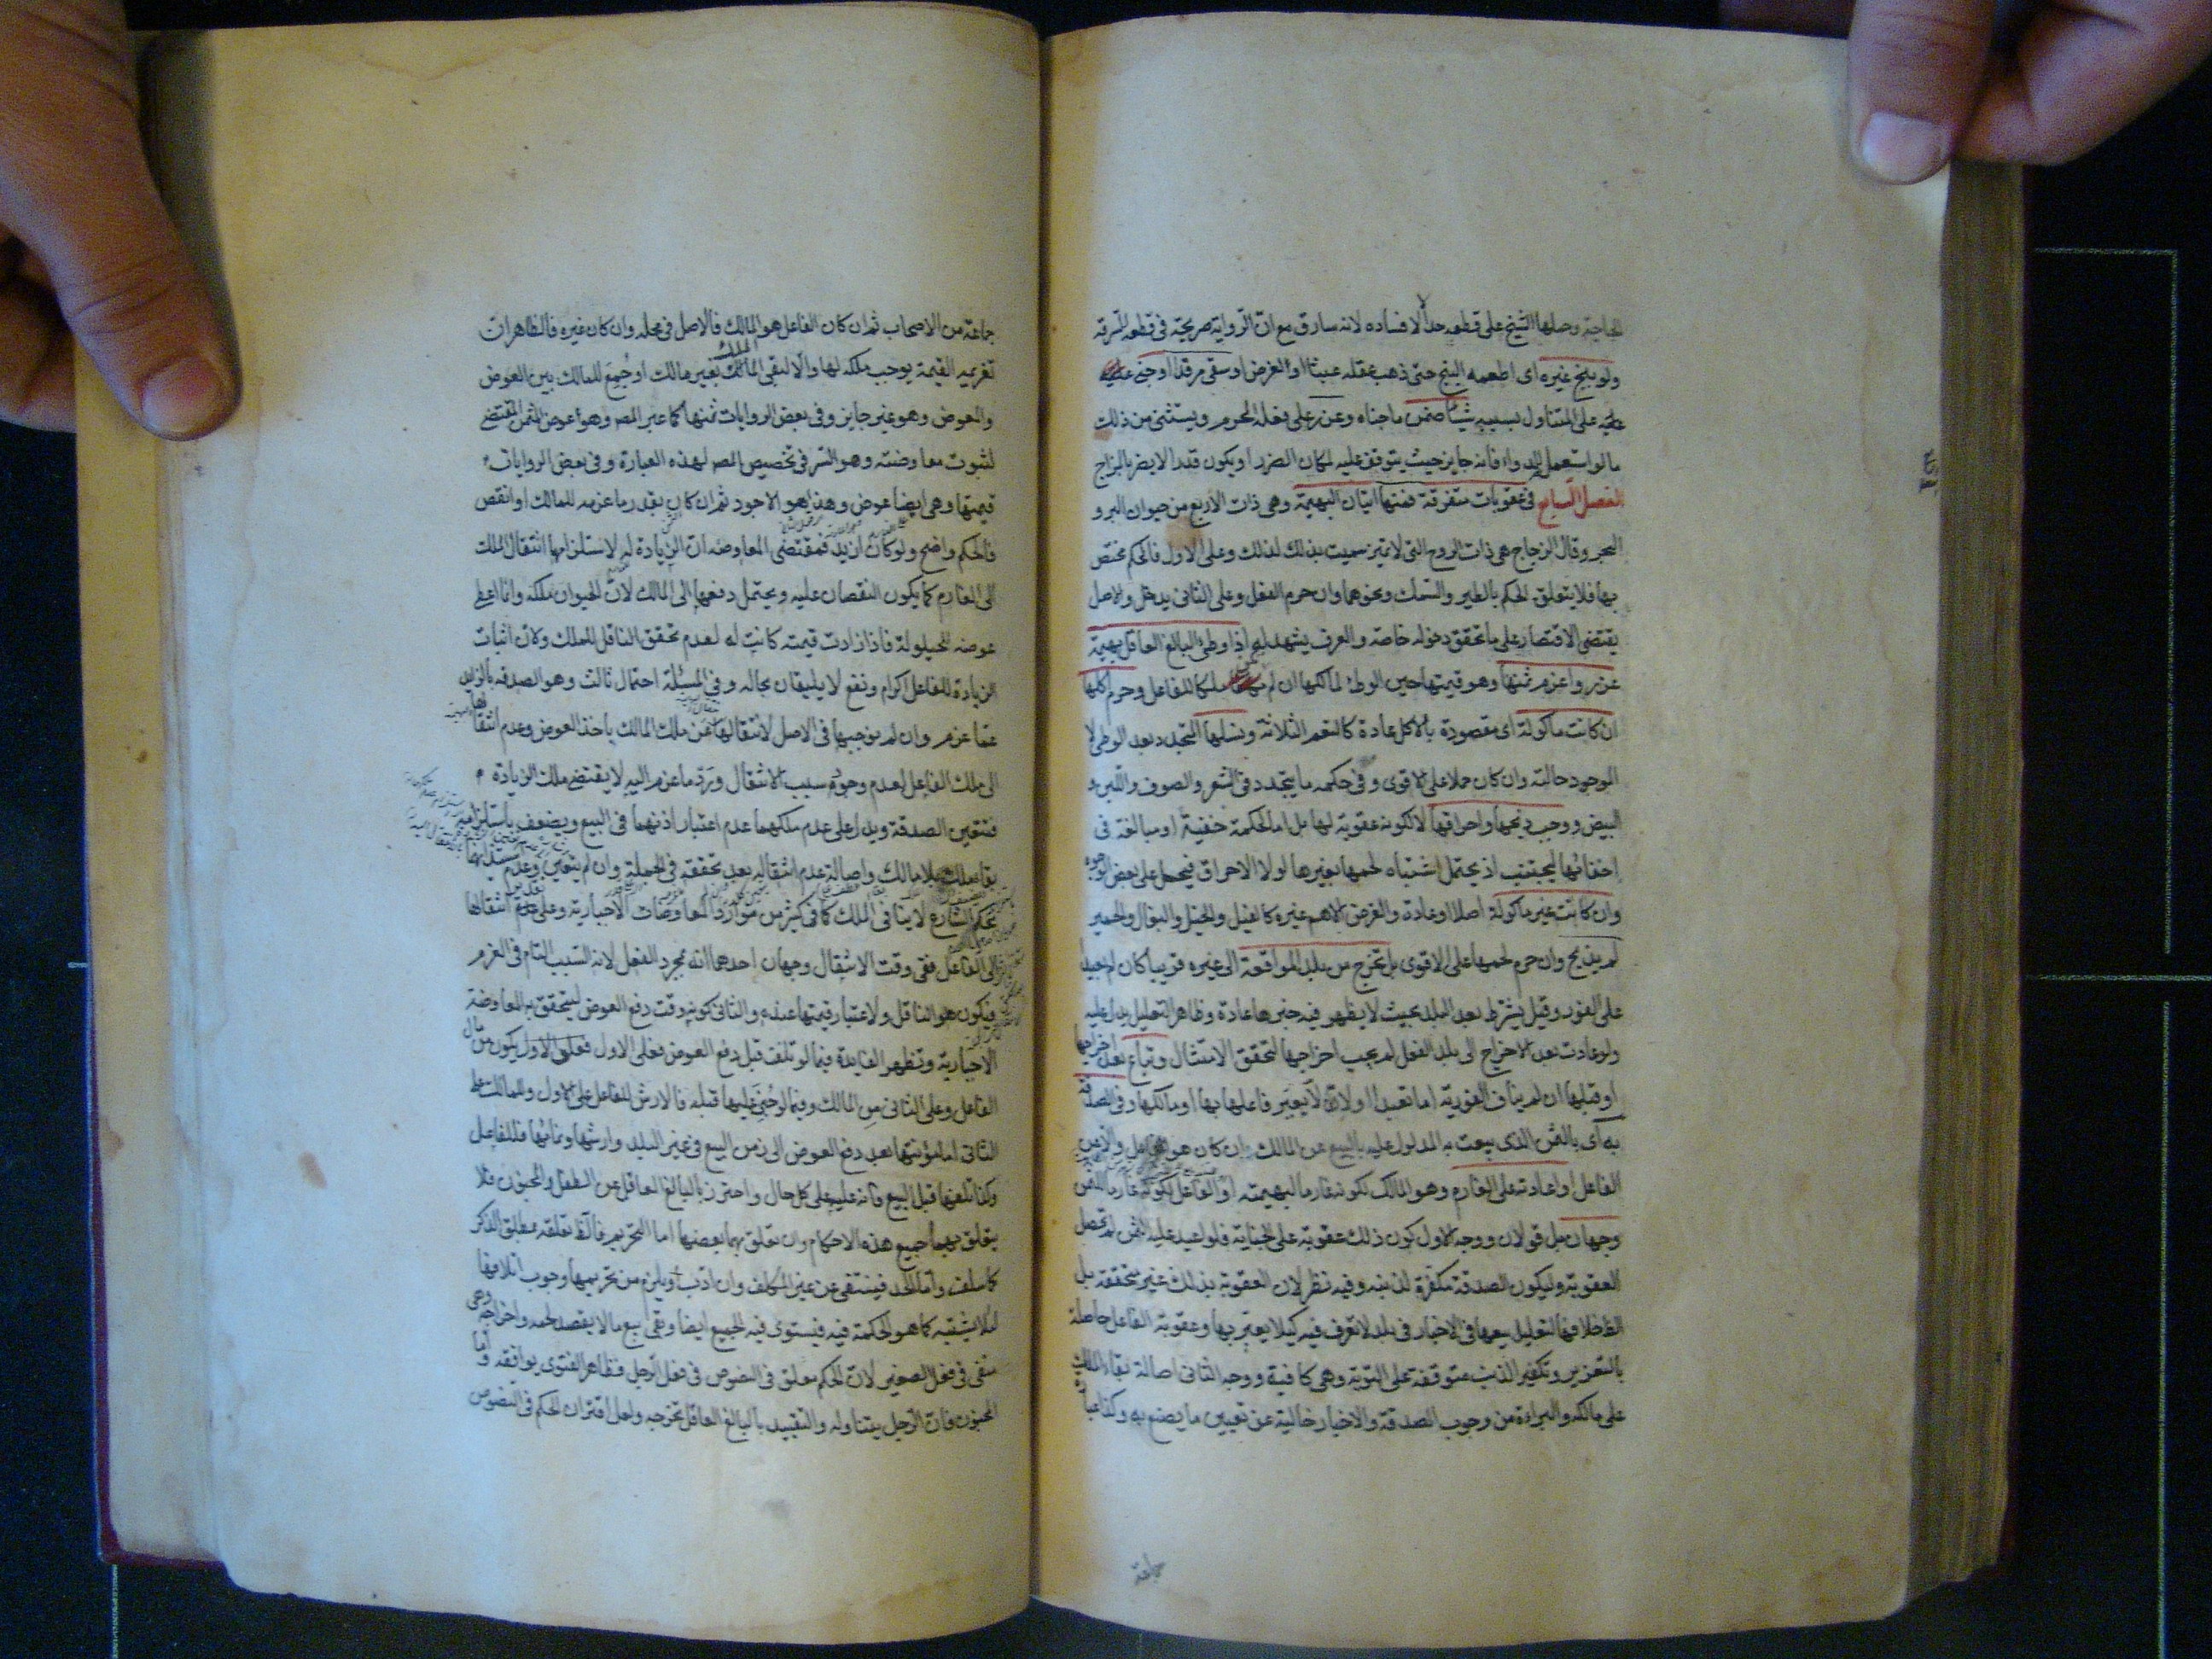 للحاجة وحملها الشيخ على قطعه حدا لا لافساده لانه سارق مع ان الرواية صريحة في قطعه للسرقة
ولو بنج غيره اى اطعمه البنج حتى ذهب عقله عبثا او لغرض او سقى مرقدا او جنى عليه
على المتناول بسببه شيئا ضمن ما جناه وعزر على فعله المحرم ويستثنى من ذلك
ما لو استعمل للدواء فانه جايز حيث يتوقف عليه لمكان الضرر او يكون قدرا لا يضر بالمزاج
الفصل السابع في عقوبات متفرقة فمنها اتيان البهيمة وهى ذات الاربع من حيوان البر و
البحر وقال الزجاج هى ذات الروح التى لا تميز سميت بذلك لذلك وعلى الاول فالحكم مختص
بها فلا يتعلق الحكم بالطير والسمك ونحوهما وان حرم الفعل وعلى الثانى يدخل والاصل
يقتضى الاقتصار على ما تحقق دخوله خاصة والعرف يشهد له اذا وطئ البالغ العاقل بهيمة
عزر واغرم ثمنها وهو قيمتها حين الوطئ لمالكها ان لم ملكا للفاعل وحرم اكلها
ان كانت مأكولة اى مقصودة بالاكل عادة كالنعم الثلاثة ونسلها المتجدد بعد الوطى لا
الموجود حالته وان كان حملا على الاقوى وفى حكمه ما يتجدد من الشعر والصوف واللبن و
البيض ووجب ذبحها واحراقها لا لكونه عقوبة لها بل اما لحكمة خفية او مبالغة فى
اخفائها ليجتنب اذ يحتمل اشتباه لحمها بغيرها لولا الاحراق فيحل على بعض الوجوه
وان كانت غير مأكولة اصلا او عادة والغرض الاهم غيره كالفيل والخيل والبغال والحمير
لم يذبح وان حرم لحمها على الاقوى بل تخرج من بلد المواقعة الى غيره قريبا كان ام بعيدا
على الفور وقيل يشترط بعد البلد بحيث لا يظهر فيه خبرها عادة وظاهر التعليل يدل عليه
ولو عادت بعد الاخراج الى بلد الفعل لم يجب اخراجها لتحقق الامتثال وتباع بعد اخراجها
او قبلها ان لم يناف الفورية اما تعبدا او لئلا يعير فاعلها بها او مالكها وفى الصدقة
به اى بالثمن الذى بيعت به المدلول عليه بالبيع عن المالك ان كان هو الفاعل والا عن
الفاعل او اعادته على الغارم وهو المالك لكونه غارما للبهيمة او الفاعل لكونه غارما للثمن
وجهان بل قولان ووجه الاول كون ذلك عقوبة على الجناية فلو اعيد عليه الثمن لم تحصل
العقوبة وليكون الصدقة مكفرة لذنبه وفيه نظر لان العقوبة بذلك غير متحققة بل
الظ خلافها لتعليل بيعها فى الاخبار فى بلد لا تعرف فيه كيلا يعير بها وعقوبة الفاعل حاصلة
بالتعزير وتكفير الذنب متوقفة على التوبة وهى كافية ووجه الثانى اصالة بقاء الملك
على مالكه والبراءة من وجوب الصدقة والاخبار خالية عن تعيين ما يصنع به وكذا عبارة
جماعة
جماعة من الاصحاب ثم ان كان الفاعل هو المالك فالاصل فى محله وان كان غيره فالظاهر ان
تغريمه القيمة يوجب ملكه لها والا لبقى الملك بغير مالك او جمع للمالك بين العوض
والمعوض وهو غير جايز وفى بعض الروايات ثمنها كما عبر المصـ وهو عوض المثمن المقتضى
لثبوت معاوضته وهو السر فى تخصيص المصـ لهذه العبارة وفى بعض الروايات
قيمتها وهى ايضا عوض وهذا هو الاجود ثم ان كان بقدر ما غرمه للمالك او انقص
فالحكم واضح ولو كان ازيد فمقتضى المعاوضة ان الزيادة له لاستلزامها انتقال الملك
الى الغارم كما يكون النقصان عليه ويحتمل دفعها الى المالك لان الحيوان ملكه وانما اعطى
عوضه للحيلولة فاذا زادت قيمته كانت له لعدم تحقق الناقل للملك ولان اثبات
الزيادة للفاعل اكرام ونفع لا يليقان بحاله وفى المسئلة احتمال ثالث وهو الصدقة بالزايد
عما غرم وان لم نوجبها فى الاصل لانتقالها عن ملك المالك باخذ العوض وعدم انتقالها
الى ملك الفاعل لعدم وجود سبب الانتقال ورد ما غرم اليه لا يقتضى ملك الزيادة
فتتعين الصدقة ويدل على عدم ملكهما عدم اعتبار اذنهما فى البيع ويضعف باستلزامه
بقاء ملك بلا مالك واصالة عدم انتقاله بعد تحققه فى الجملة وان لم يتعين وعدم
تحكم الشارع لا ينافى الملك كما فى كثير من موارد المعاوضات الاجبارية وعلى تقدير انتقالها
الى الفاعل ففى وقت الانتقال وجهان احدهما انه بمجرد الفعل لانه السبب التام فى الغرم
فيكون هو الناقل ولاعتبار قيمتها عنده والثانى كونه وقت دفع العوض ليتحقق به المعاوضة
الاجبارية وتظهر الفايدة فيما لو تلفت قبل دفع العوض فعلى الاول يكون من مال
الفاعل وعلى الثانى من المالك وفيما لو جنى عليها قبله فالارش للفاعل على الاول وللمالك على
الثانى اما مؤنتها بعد دفع العوض الى زمن البيع فى غير البلد وارشها ونماؤها فللفاعل
وكذا تلفها قبل البيع فانه عليه على كل حال واحترز بالبالغ العاقل عن الطفل والمجنون فلا
يتعلق بهما جميع هذه الاحكام وان تعلق بهما بعضها اما التحريم فالظ تعلقه بمطلق الذكر
كما سلف واما الحد فينتفى عن غير المكلف وان ادب ويلزم من تحريمها وجوب اتلافها
لئلا يشتبه كما هو الحكمة فيه فيستوى فيه الجميع ايضا وبقى بيع ما لا يقصد لحمه واخراجه وهو
منفى فى فعل الصغير لان الحكم معلق فى النصوص فى فعل الرجل فظاهر الفتوى يوافقه واما
المجنون فان الرجل يتناوله والتقييد بالبالغ العاقل تخرجه ولعل اقتران الحكم فى النصوص